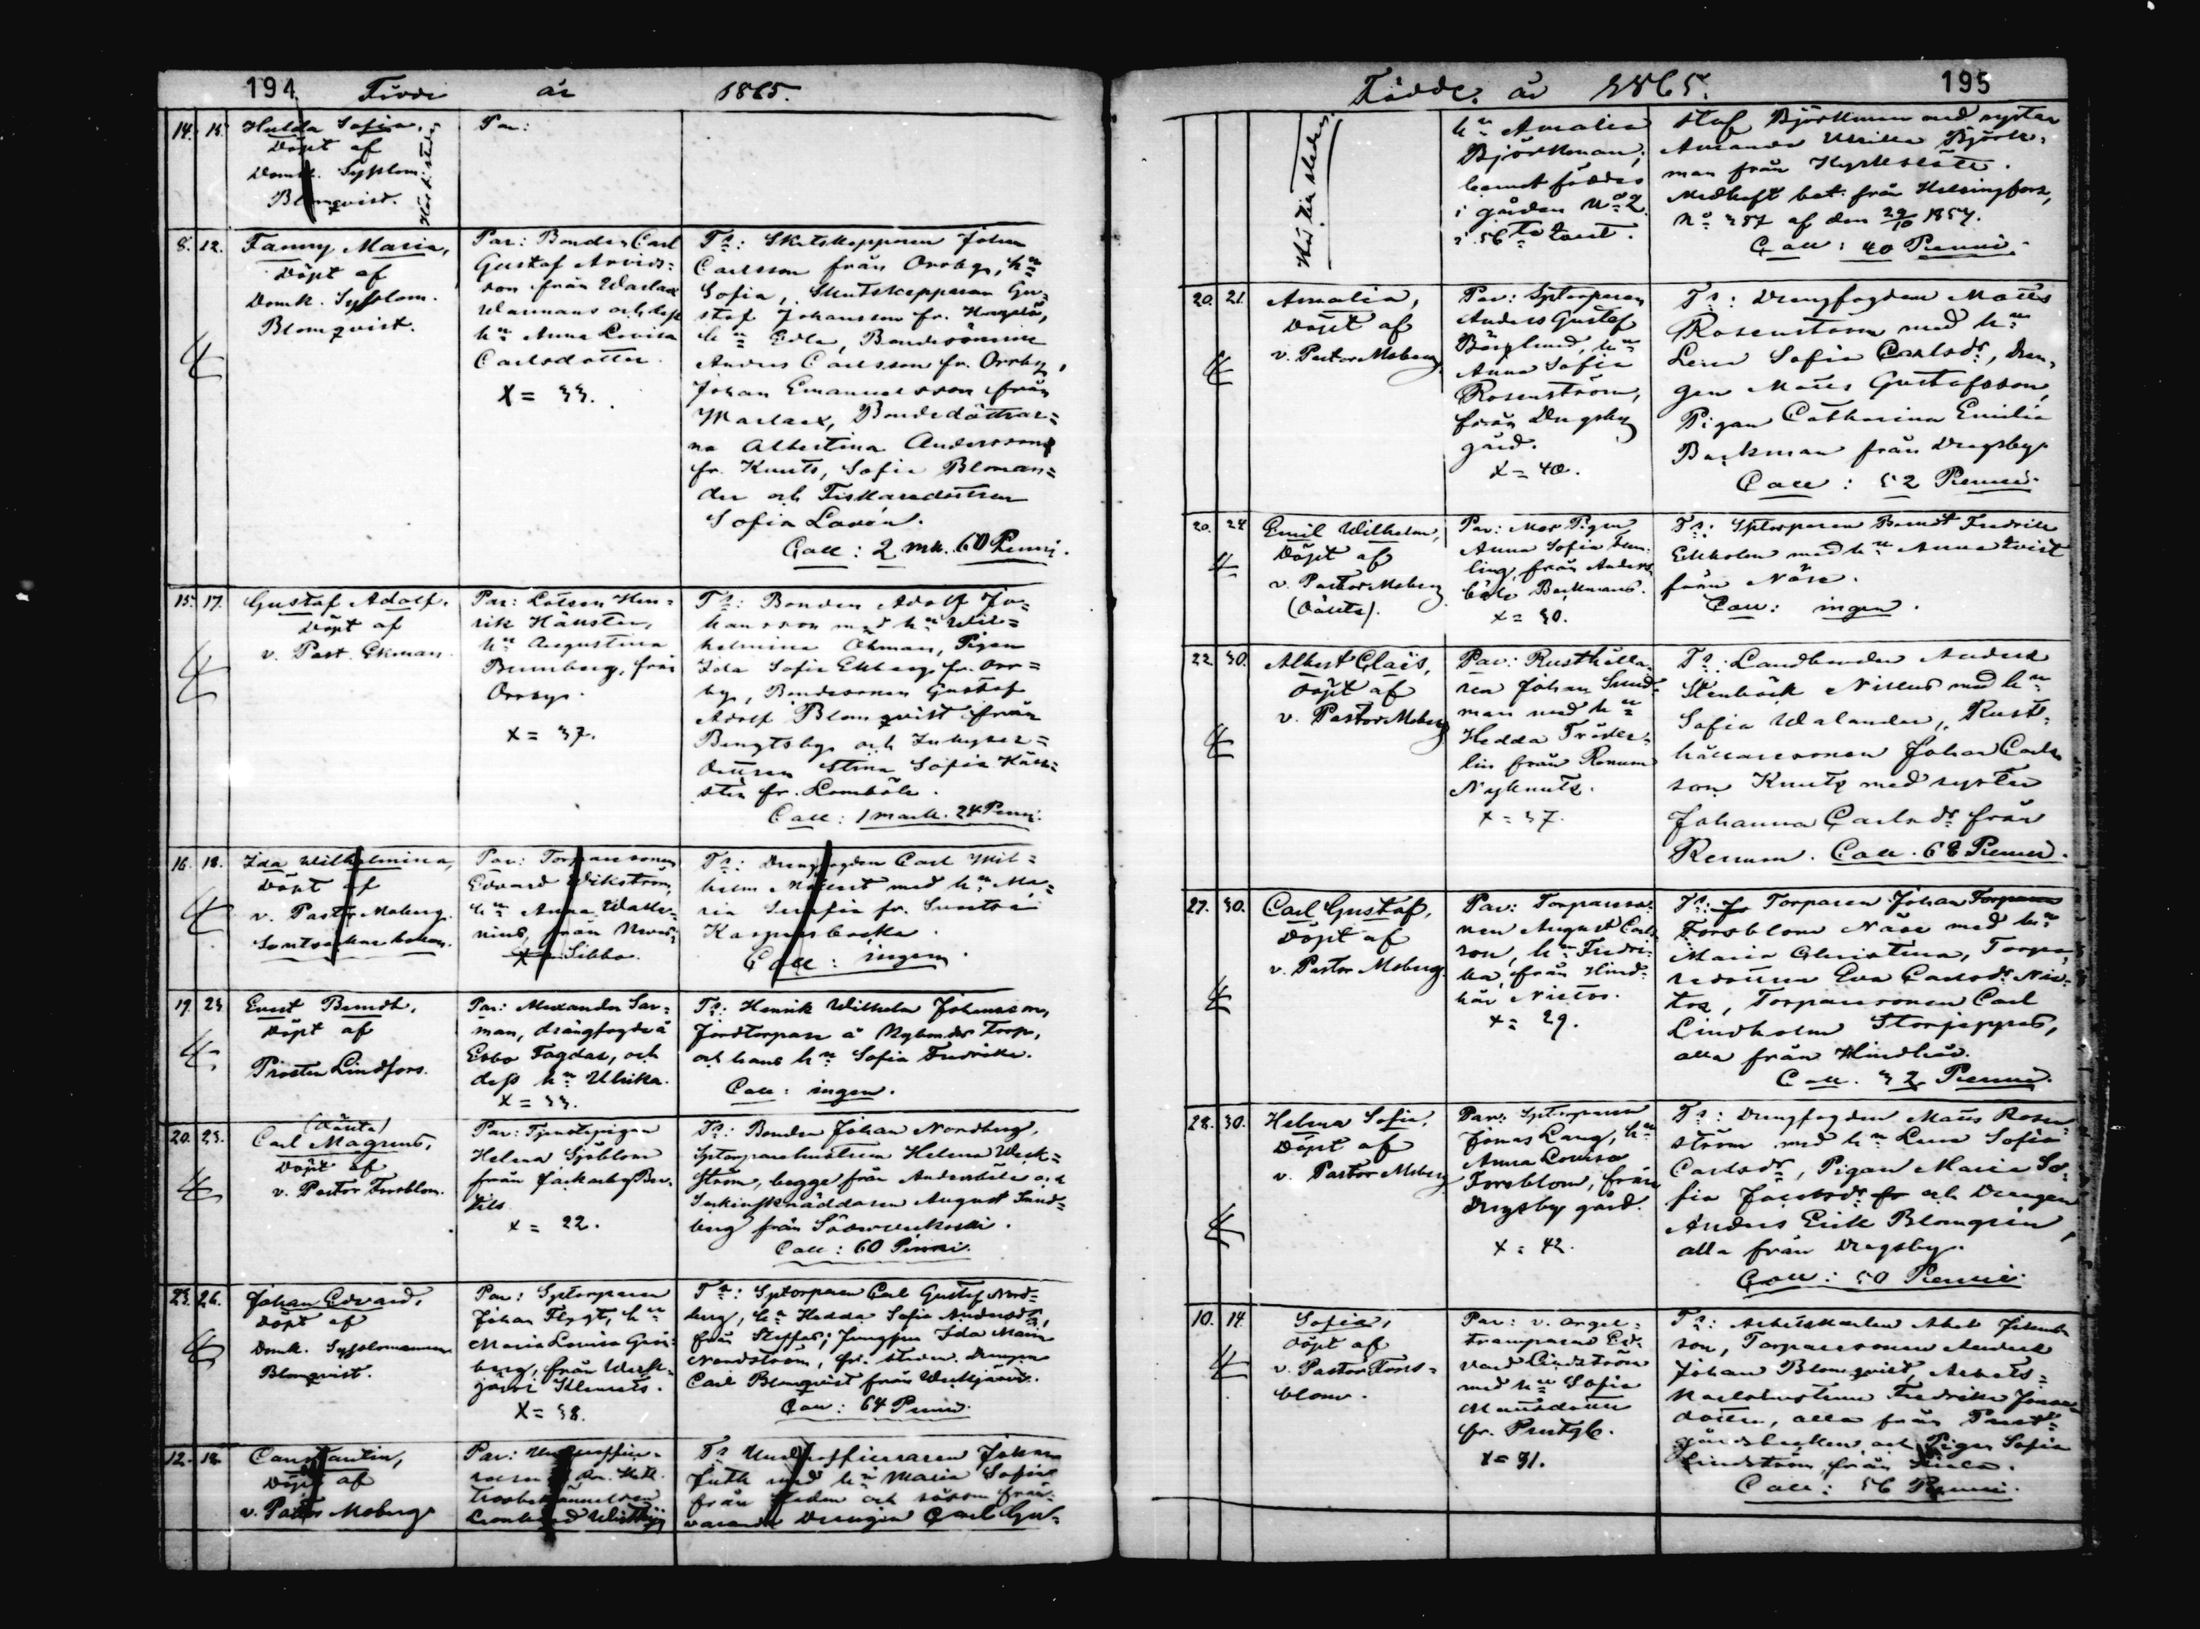 194 Födde år 1865.
14. 15. Hulda Sofia,
Döpt af
Domk. Sysslom.
Blomqvist.
Par:
8. 12. Fanny Maria,
Döpt af
Domk. Sysslom.
Blomqvist.
Par: Bonden Carl
Gustaf Arvids=
son från
och dess
hu Anna Lovisa
Carlsdotter.
X = 33.
Tn: Skutskepparen Johan
Carlsson från Orrby, hu
Sofia, Skutskepparen Gu=
staf Johansson fr.
hu Edla, Bondesönerne
Anders Carlsson fr. Orrby,
Johan Emanuelsson från
Bondedöttrar=
na Albertina Andersson
fr. Knuts, Sofia Bloman=
der och Fiskaredottren
Sofia Lavón.
Coll: 2 mk. 60 Penni.
15. 17. Gustaf Adolf.
Döpt af
v. Past. Ekman.
Par: Lotsen Hen=
rik Hänsten,
hu Augustina
från
Orrby.
X = 37.
Tn: Bonden Adolf Jo=
hansson med hu Wil=
helmina Öhman, Pigan
Ida Sofia Ekberg fr. Orr=
by, Bondesonen Gustaf
Adolf Blomqvist från
Bengtsby och Inhyses=
dottren Stina Sofia Hän=
sten fr. Lomböle.
Coll: 1 mark. 24 Penni.
16. 18. Ida Wilhelmina,
Döpt af
v. Pastor Moberg.
Par: Torparesonen
Edvard Wikström,
hu Anna
från
Sibbo.
Tn: Drängfogden Carl Wil=
helm med hu Ma=
ria Serafia fr.
Kaspersbacka.
Coll: ingen.
19. 23. Ernst Berndt,
Döpt af
Prosten Lindfors.
Par: Alexander Sar=
man, drängfogde å
Esbo Fagdar, och
dess hu Ulrika.
X = 33.
Tn: Henrik Wilhelm Johansson,
Jordtorpare å Nybondas Torp,
och hans hu Sofia Fredrika.
Coll: ingen.
20. 23. (Oäkta)
Carl Magnus,
Döpt af
v. Pastor Forsblom.
Par: Tjenstepigan
Helena Sjöblom
från Jackarby Ber=
tils.
X = 22.
Tn: Bonden Johan Nordberg,
Sptorparehustrun Helena Weck=
ström, begge från Andersböle och
Sockenskräddaren August Sund=
berg från Söderveckoski.
Coll: 60 Penni.
23. 26. Johan Edvard,
Döpt af
Domk. Sysslomannen
Blomqvist.
Par: Sptorparen
Johan Flygt, hu
Maria Lovisa Grön=
berg, från Weck=
järvi Klemets.
X = 38.
Tn: Sptorparen Carl Gustaf Nord=
berg, hu Hedda Sofia Andersdr,
från Steffas; Jungfrun Ida Maria
Nordström, fr. staden. Drängen
Carl Blomqvist från Weckjärvi.
Coll: 64 Penni.
12. 18. Constantin,
Döpt af
v. Pastor Moberg
Par: Underofficer=
Trosbekännelsen
Tn Underofficeraren Johan
Juth med hu Maria Sofia
från staden och såsom från=
varande Drängen Carl Gu=
Födde år 1865. 195
hu Amalia
Björkman;
barnet föddes
i gården No 2
i 56te Qvart.
staf Björkman med syster
Amanda Ulrika Björk=
man från Kyrkslätt.
Medhaft bet. från Helsingfors,
No 357 af den 29/10 1857.
Coll: 40 Penni.
20. 21. Amalia,
Döpt af
v. Pastor Moberg
Par: Sptorparen
Anders Gustaf
Berglund, hu
Anna Sofia
Rosenström,
från Drägsby
gård.
X = 40.
Tn: Drängfogden Matts
Rosenström med hu
Lena Sofia Carlsdr, Drän=
gen Matts Gustafsson,
Pigan Catharina Emilia
Backman från Drägsby.
Coll: 52 Penni.
20. 24 Emil Wilhelm,
Döpt af
v. Pastor Moberg
(Oäkta).
Par: Mor Pigan
Anna Sofia Flem=
ling, från Anders=
böle Backmans.
X = 30.
Tn: Sptorparen Berndt Fredrik
Ekholm med hu Anna Qvist
från Näse.
Coll: ingen.
22. 30. Albert Claës,
Döpt af
v. Pastor Moberg
Par: Rusthålla=
ren Johan Sund=
man med hu
Hedda Fröder=
lin från Renum
Nyknuts.
X = 37.
Tn: Landbonden Anders
Stenbäck Nissus med hu
Sofia Walander, Rust=
hållaresonen Johan Carls
son Knuts med syster
Johanna Carlsdr från
Renum. Coll. 68 Penni.
27. 30. Carl Gustaf,
Döpt af
v. Pastor Moberg.
Par: Torpareso=
nen August Carls
son, hu Fredri=
ka, från Hind=
hår Nietos.
X = 29.
Tn: Torparen Johan Torparen
Forsblom Näse med hu
Maria Christina, Torpa=
redottren Eva Carlsdr Nie=
tos, Torparesonen Carl
Lindholm Storjeppas,
alla från Hindhår.
Coll. 32 Penni.
28. 30. Helena Sofia,
Döpt af
v. Pastor Moberg
Par: Sptorparen
Jonas Lang, hu
Anna Lovisa
Forsblom, från
Drägsby gård.
X = 42.
Tn: Drängfogden Matts Rosen=
ström med hu Lena Sofia
Carlsdr, Pigan Maria So=
fia Jacobsdr fr och Drängen
Anders Erik Blomgrén,
alla från Drägsby.
Coll: 50 Penni.
10. 14. Sofia,
Döpt af
v. Pastor Fors=
blom.
Par: v. orgel=
tramparen Ed=
vard Lindström
med hu Sofia
Mattsdotter
fr. Prestgb.
X = 31.
Tn: Arbetskarlen Abel
son, Torparesonen Anders
Johan Blomqvist, Arbets=
karlshustrun Fredrika
dotter, alla från Prest=
gårdsbacken, och Pigan Sofia
Lindström, från
Coll: 56 Penni.